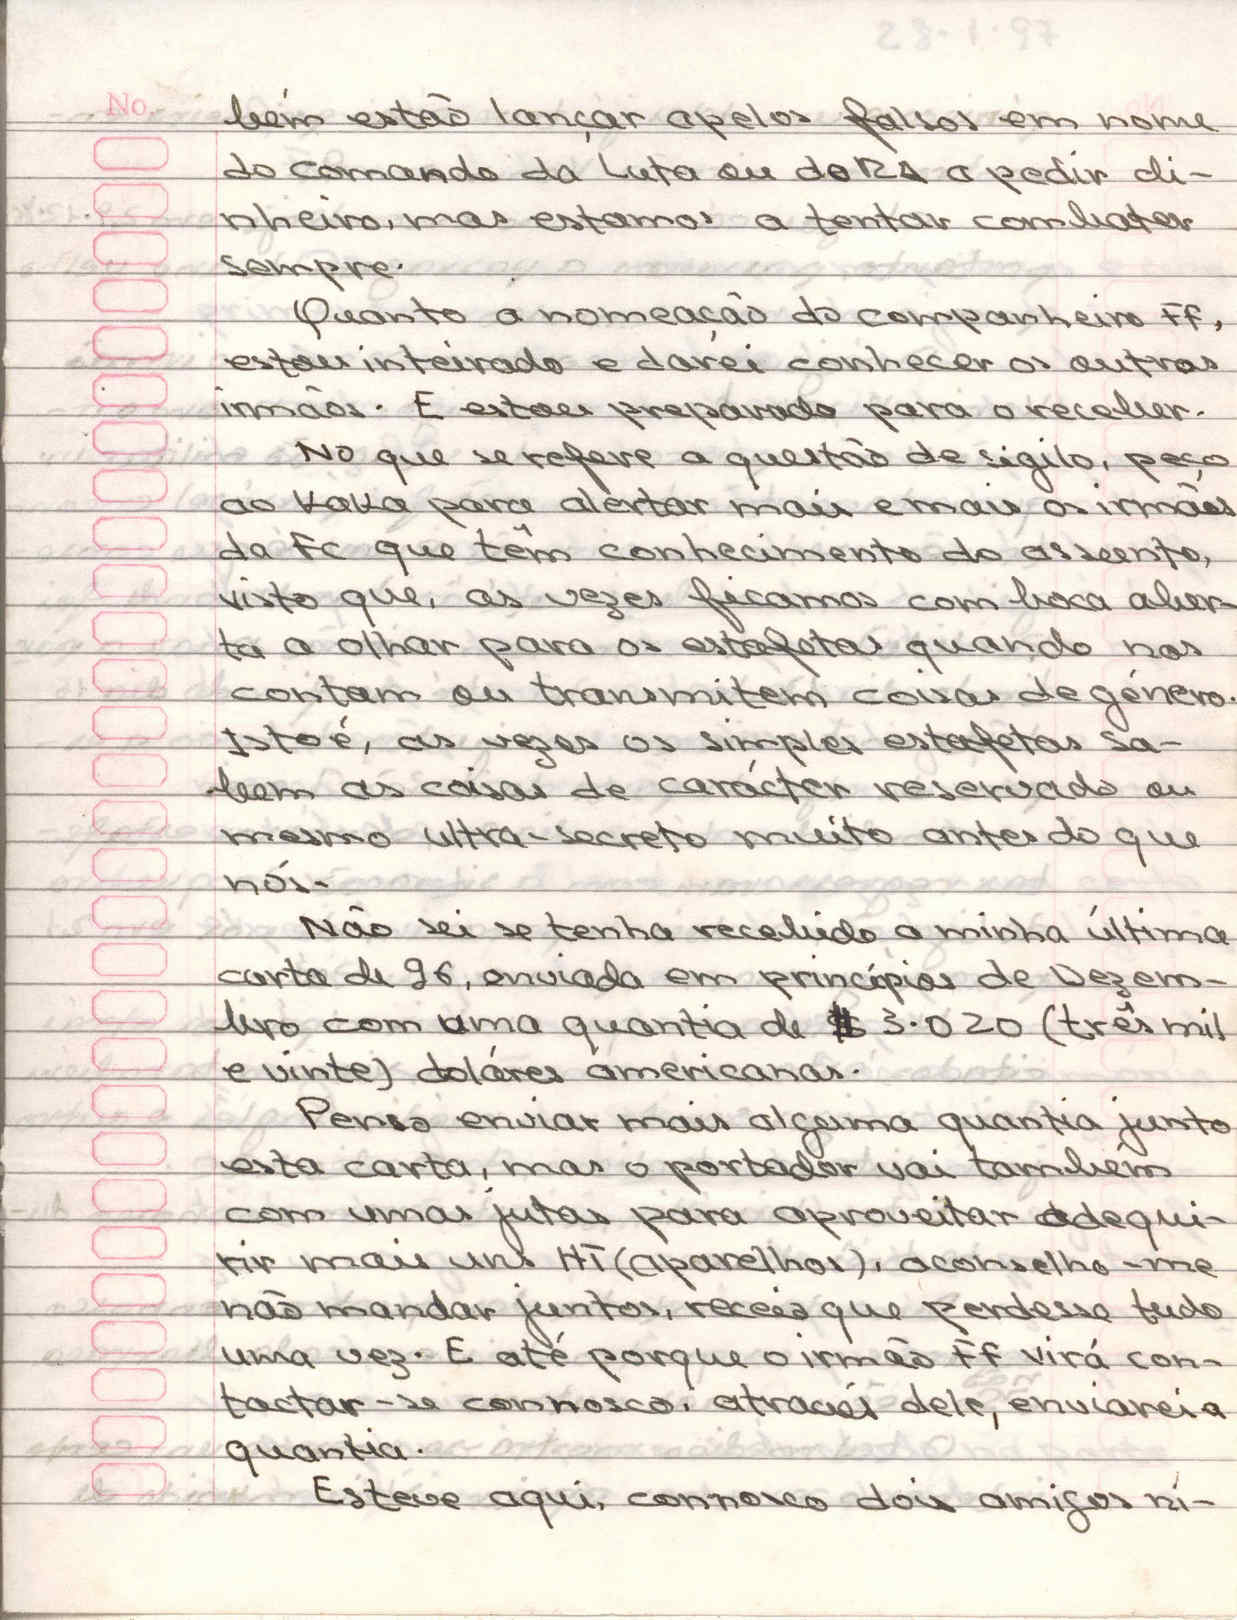 No.
bém estão lançar apelos falsos em nome
do comando da Luta ou do RA a pedir di-
nheiro, mas estamos a tentar combater
sempre.
Quanto a nomeação do companheiro Ff,
estou inteirado e darei conhecer os outros
irmãos. E estou preparado para o receber.
No que se refere a questão de sigilo, peço
ao KaKa para alertar mais e mais os irmãos
da Fc que têm conhecimento do assunto,
visto que, as vezes ficamos com boca aber-
ta a olhar para os estafetas quando nos
contam ou transmitem coisas de género.
Isto é, as vezes os simples estafetas sa-
bem as coisas de carácter reservado ou
mesmo ultra-secreto muito antes do que
nós.
Não sei se tenha recebido a minha última
carta de 96, enviada em princípios de Dezem-
bro com uma quantia de $ 3.020 (três mil
e vinte) doláres americanas.
Penso enviar mais alguma quantia junto
esta carta, mas o portador vai também
com umas jutas para aproveitar adequi-
rir mais uns HT (aparelhos), aconselho-me
não mandar juntos, receio que perdesse tudo
uma vez. E até porque o irmão Ff virá con-
tactar-se connosco, através dele, enviarei a
quantia.
Esteve aqui, connosco dois amigos ni-